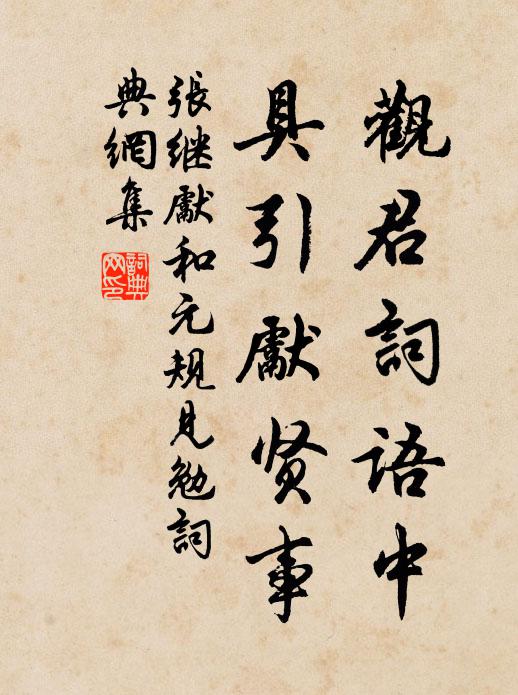 觀君詞语中
具引獻贤事
張继獻和元规見勉詞
典網集
詞典网印